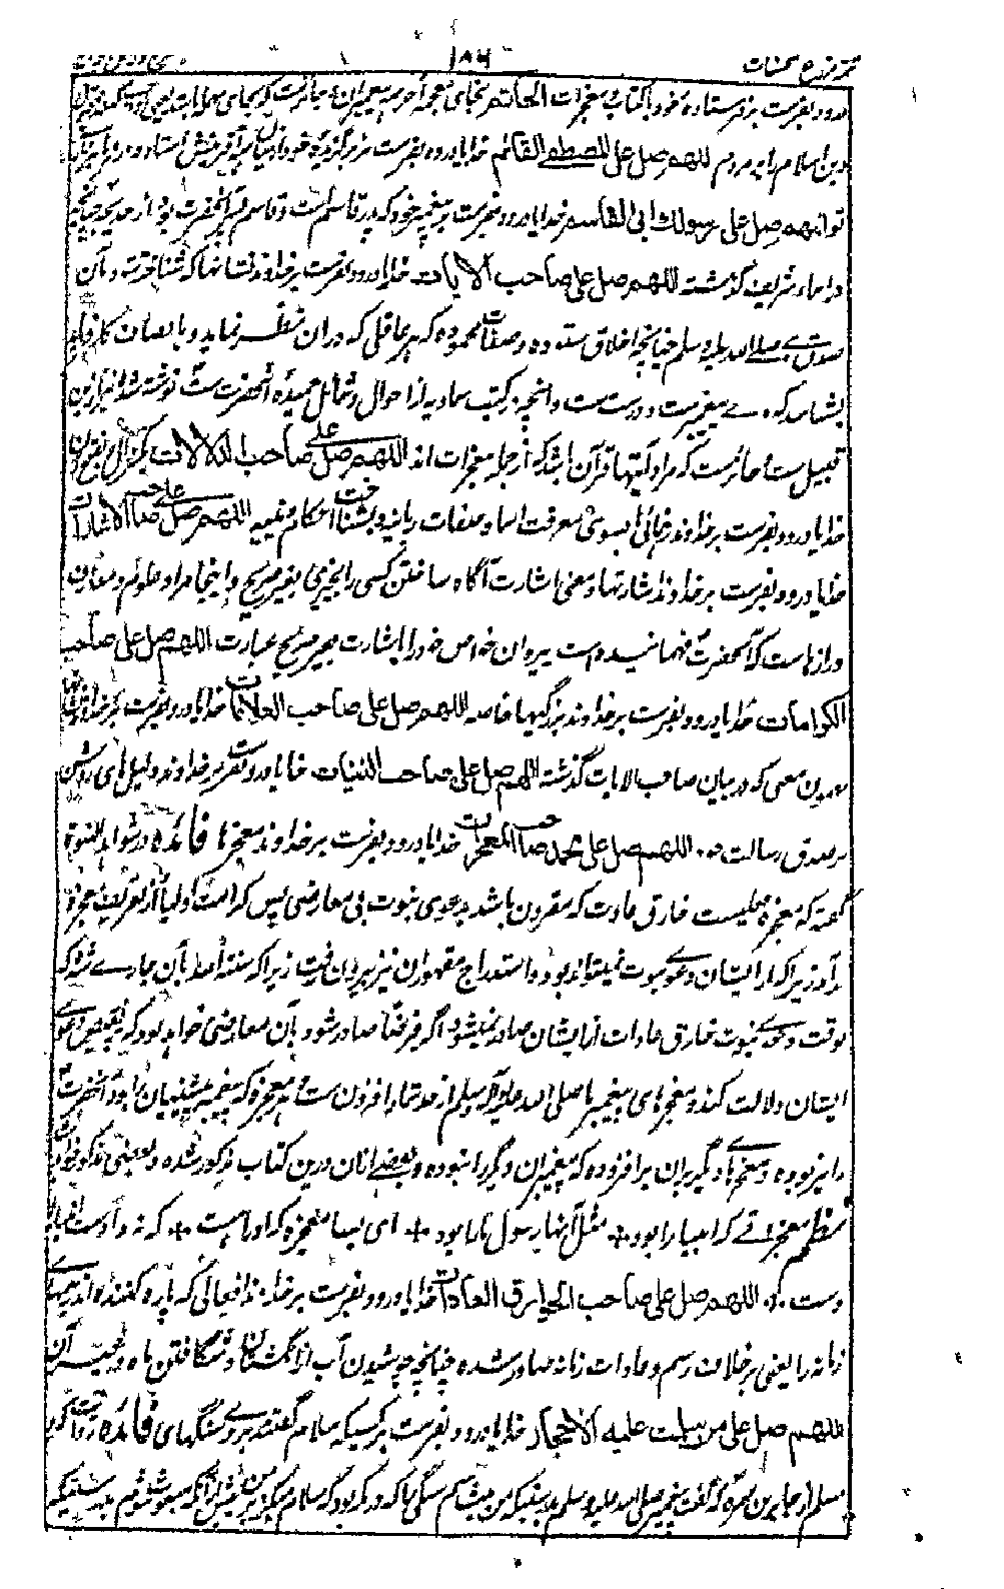 ۱۸۶
درود بفرست بر فرستاده خود
دین اسلام را به مردم اللهم صل علی المصطفی القائم خدایا درود بفرست بر برگزیده خود
اللهم صل علی رسولك ابی القاسم خدایا درود بفرست بر پیغمبر خود که پدر قاسم است و قاسم پسر آنحضرت بود از خدیجه چنانچه
در اسماء شریف گذشت اللهم صل علی صاحب الآیات خدایا درود بفرست بر خداوند نشانها که شناخته شود بآن
صدق وی صلی الله علیه وسلم چنانچه اخلاق ستوده و صفات محموده که هر عاقلی که در آن نظر نماید
بشناسد که وی پیغمبرست و درست ست و آنچه در کتب سماویه از احوال و شمائل حمیده آنحضرت ست نوشته شد نیز ازین
قبیل ست و جائزست که مراد آیتها قرآن باشد که از جمله معجزات اند اللهم صل علی صاحب الدلالات
خدایا درود بفرست بر خداوند رهنمائی بسوی معرفت اسما و صفات ربانیه و بشناخت احکام غیبیه اللهم صل علی صاحب الاشارات
خدایا درود بفرست بر خداوند اشارتها و معنی اشارت آگاه ساختن کسی را بچیزی بغیر صریح و اینجا مراد علوم و معارف
و رازهاست که آنحضرت فهمانیده است پیروان خواص خود را باشارت بغیر صریح عبارت اللهم صل علی صاحب
الکرامات خدایا درود بفرست بر خداوند بزرگیها خاصه اللهم صل علی صاحب العلامات خدایا درود بفرست بر خداوند
بهمین معنی که در بیان صاحب الآیات گذشته اللهم صل علی صاحب البینات خدایا درود بفرست بر خداوند دلیل‌های روشن
بر صدق رسالت خود اللهم صل علی محمد صاحب المعجزات خدایا درود بفرست بر خداوند معجزها فائده در شواهد النبوة
گفته که معجزه عملیست خارق عادت که مقرون باشد بدعوی نبوت بی معارضی پس کرامت اولیا از تعریف معجزه
برآمد زیرا که از ایشان دعوی نبوت نمیتواند بود و استدراج مقهوران نیز بیرون رفت زیرا که سنة الله بآن جاری شده که
بوقت دعوی نبوت خارق عادات از ایشان صادر نمیشود و اگر فرضا صادر شود بآن معارضی خواهد بود که بر نقیض دعوی
ایشان دلالت کند و معجزهای پیغمبر ما صلی الله علیه وآله وسلم از حد شمار افزون ست و هر معجزه که پیغمبر پیشینیان را بود آنحضرت
را نیز بوده و معجزها دیگر بران برافزوده که پیغمبران دیگر را نبوده و بعضی ازان درین کتاب مذکور شده و بعضی مذکور خواهد
نظم معجزاتی که انبیا را بود * مثل آنها رسول ما را بود * ای بسا معجزه که او راست * که نه
دست اللهم صل علی صاحب الخوارق العادات خدایا درود بفرست بر خداوند افعالی که پاره کننده اند
زمانه را یعنی بر خلاف رسم و عادات زمانه صادر شده چنانچه جوشیدن آب از انگشتان و شگافتن ماه و غیر آن
اللهم صل علی من سلمت علیه الاحجار خدایا درود بفرست بر کسیکه سلام گفتند بر وی سنگهای فائده روایت کرد
مسلم از جابر بن سمره که گفت پیغمبر صلی الله علیه وسلم بدرستیکه من میشناسم سنگی را که در مکه بود که سلام میگفت بر من پیش از آنکه مبعوث شوم بدرستیکه